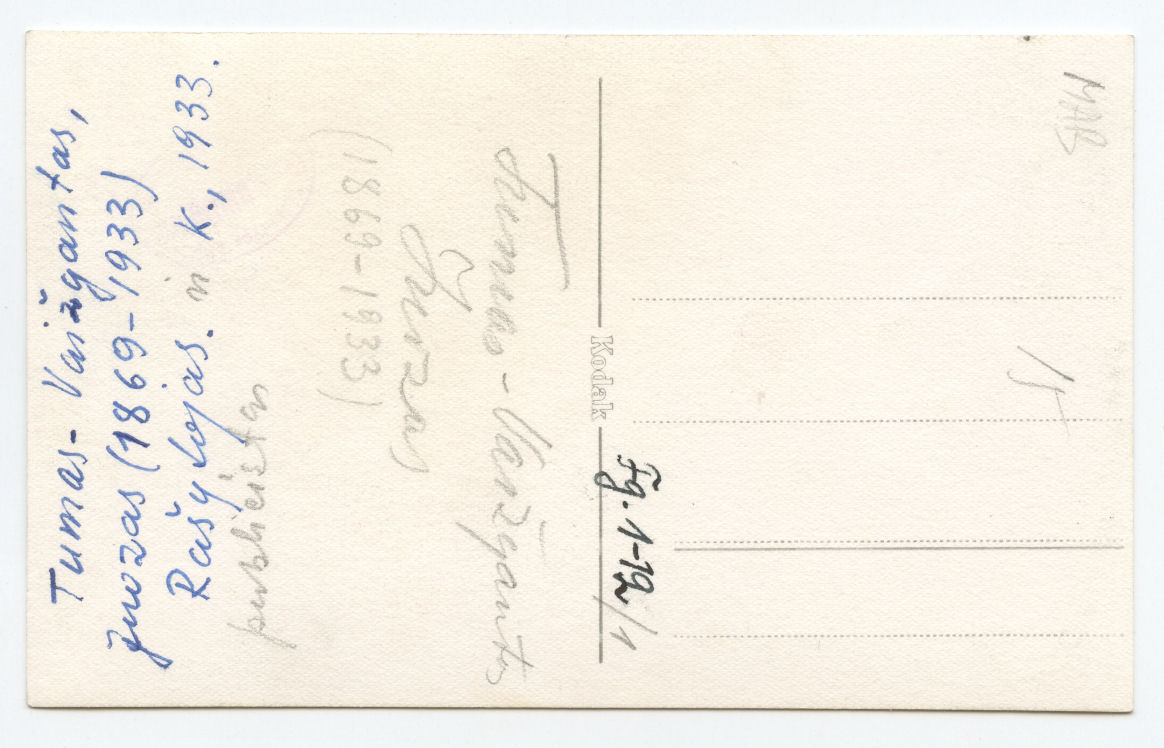 Tumas-Vaižgantas,
Juozas (1869-1933)
Rašytojas. ir K., 1933.
publicistas
Tumas-Vaižgantas
Juozas
(1869-1933)
Kodak
Fg. 1-12/1
MAB
15